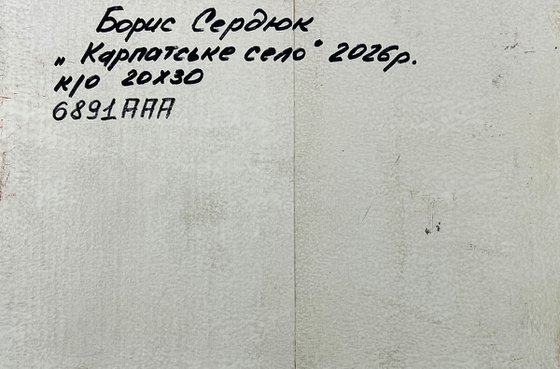 Борис Сердюк
„Карпатське село" 2026р.
к/о 20х30
6891ААА